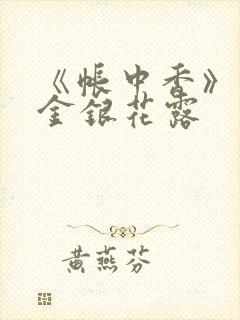 《帐中香》
金银花露
黄燕芬